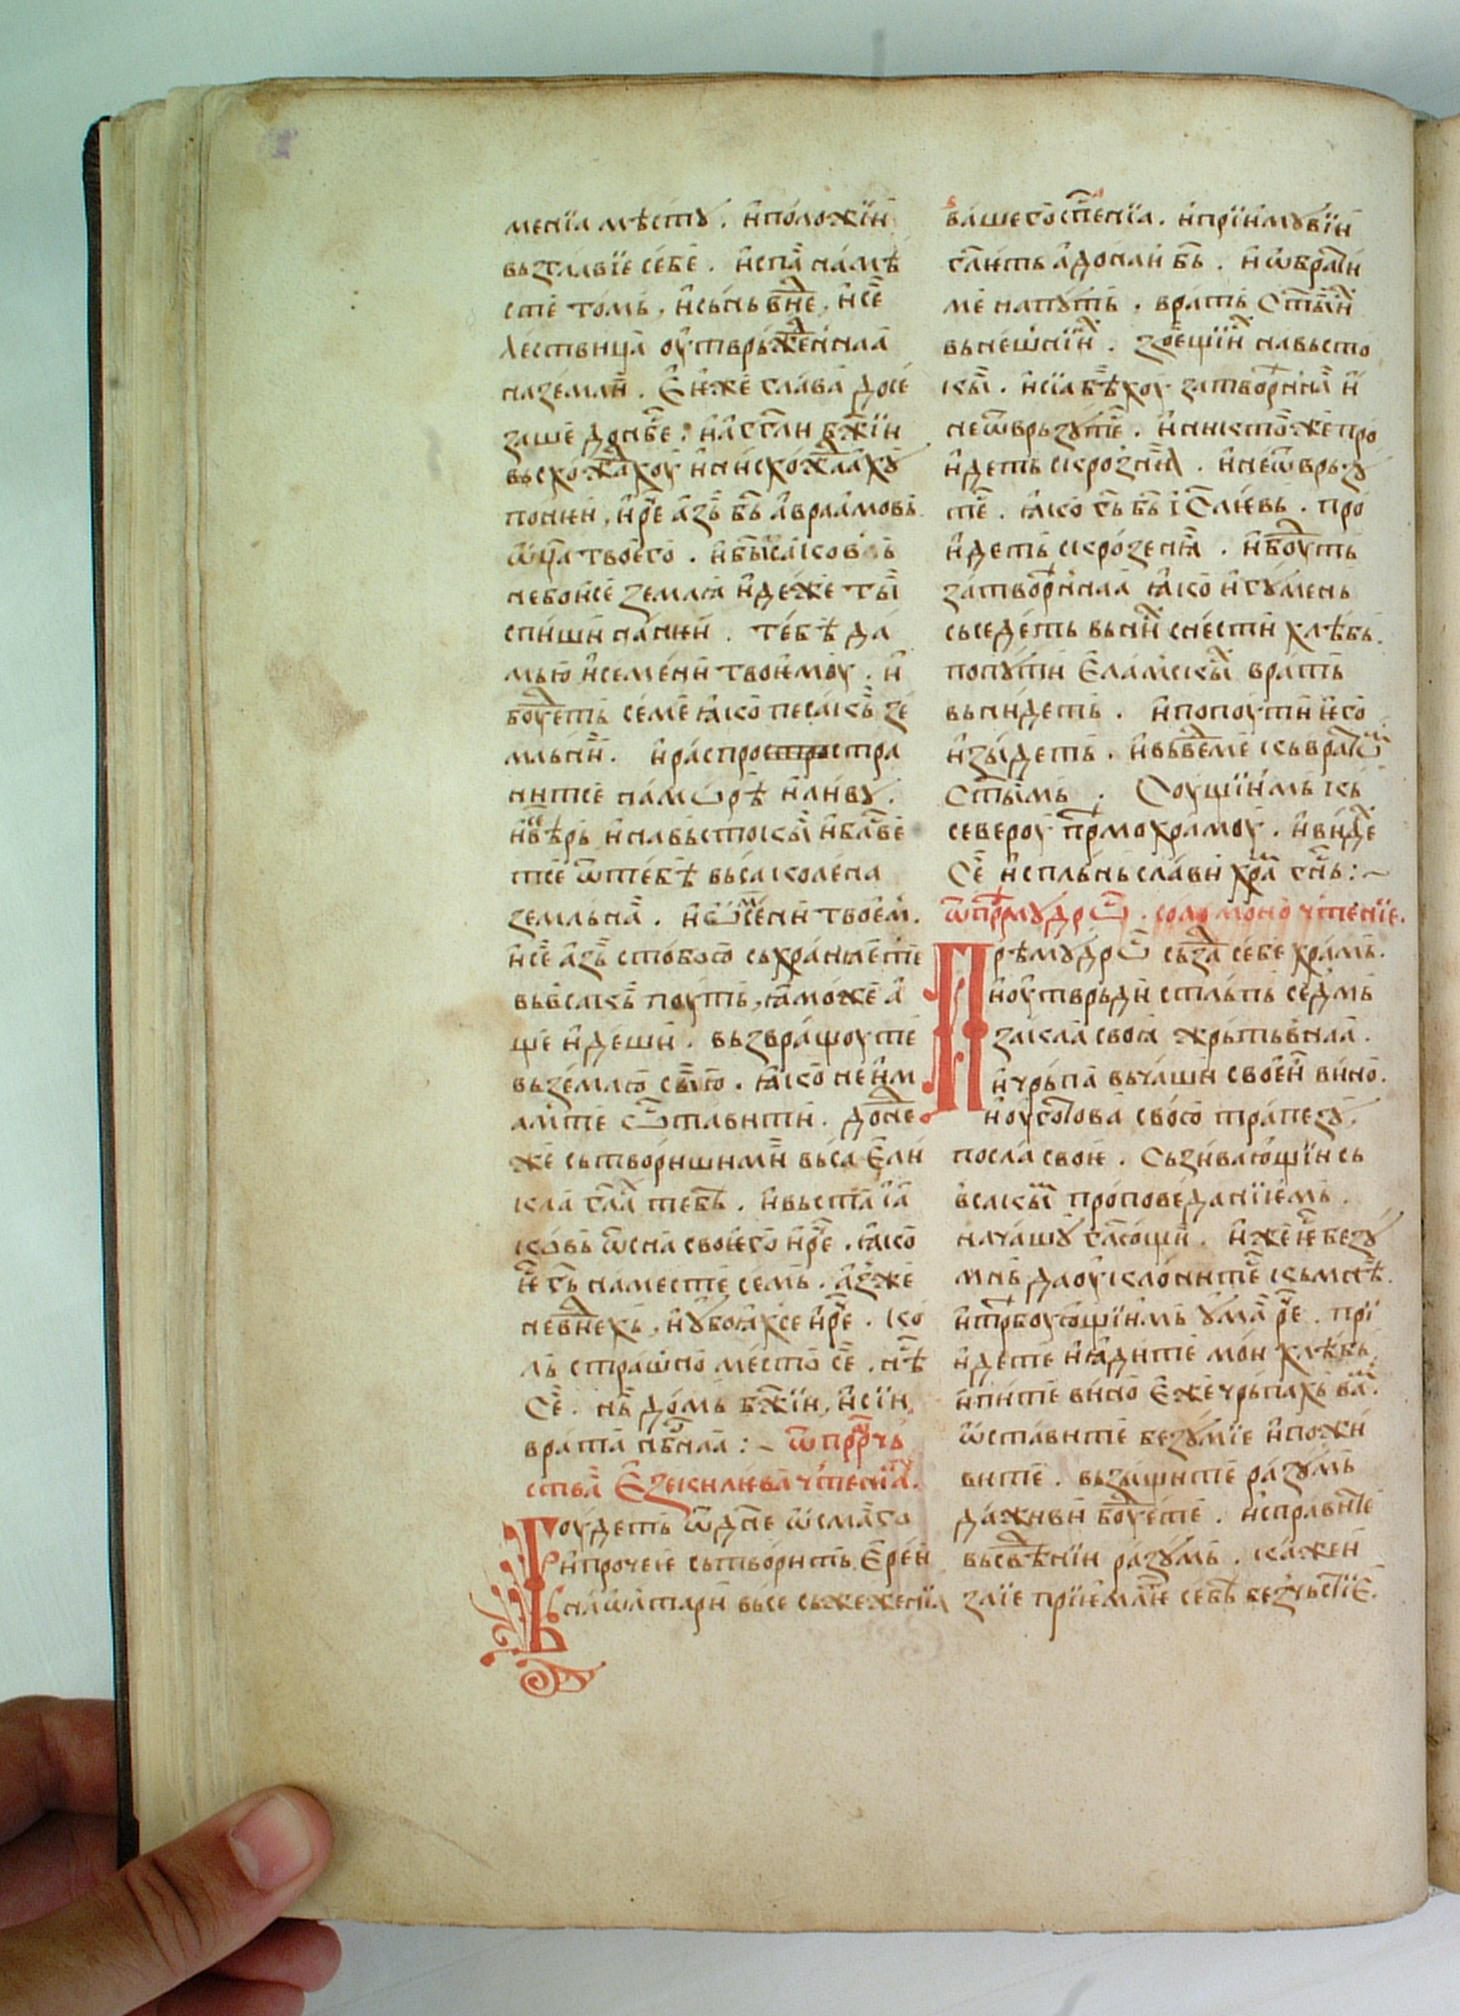 менїа мѣстꙋ. и положїи
вьзглавїе себе. и спа на мѣ
сте томь, и сьнь виде, и се
лествица оутврьжен̾наа
на земли. Еиже глава досе
заше до нбе. и агг͠ли бж͠їи
вьсхождахоу и нисхождаахꙋ
по нѥи, и реч азь бь авраамовь
ѡц͠а твоего. и бь исаковь
не боисе землꙗ идеже ты
спиши на нѥи. тебѣ да
мь ю и семени твоѥмоу. и
боудеть семе ꙗко песакь зе
мльни. и распространит
итсе на море и ливꙋ.
и сѣверь и на вьстокы и блг͠ве
тсе ѿ тебѣ вьса колена
земльна. и ѡ семени твоем.
и се азь с тобою сьхранꙗѥ те
вь всакь поуть, ꙗможе а
ще идеши. вьзвращоу те
вь землю сїю. ꙗко не им
амь те ѡставити. донде
же сьтвориши ми вьса ели
каа гл͠аа тебѣ. и вьста їа
ковь ѿ сна своѥго и реч. ꙗко
ѥсть г͠ь на месте семь. азже
не ведехь, и ꙋбоꙗхсе и реч. ко
ль страшно место се. нѣ
се. нь домь бж͠їи, и сїи
врата нбснаа :~ ѿ прорчь
ства Езекилѥва чтенїа.
Боудеть ѿ дне ѡсмаго
и прочее сьтворить ѥреи
на ѡлтари вьсе сьжеженїа
ваше го сп͠енїа. и прїимꙋ вїи
гл͠ить адонаи б͠ь. и ѡбрати
ме на пꙋть. врать ст͠ыих
вьнешнїих. зрещїих на вьсто
кы. и сїа бѣхоу затворенна и
не ѿврьзꙋтсе. и никтоже про
идеть скрозе нꙗ. и не ѿврьзꙋ
тсе. ꙗко г͠ь б͠ь ї͠лѥвь. про
идеть скрозе нꙗ. и боудꙋть
затвореннаа ꙗко игꙋмень
сьседеть вь них снести хлѣбь.
по пꙋти еламскых врать
вьнидеть. и по поути ѥго
изыдеть. и вьведе ме кь вратом
ст͠ымь. Соущїимь кь
североу прѣмо храмоу. и видех
се исплнь слави храм г͠нь :~
ѿ прѣмꙋдрости. соломоно чтенїе.
Прѣмꙋдрость сьзда себе храмь.
и оутврьди стльпь седмь
закла своꙗ жрьтьвнаа.
и чрьпа вь чаши своѥи вино.
и оуготова свою трапезꙋ,
посла своѥ. Сьзиваюшїи сь
всакым проповеданїѥмь.
на чашꙋ гл͠ющи. иже ѥсть безꙋ
мнь да оуклонитсе кь мнѣ.
и трѣбоующїимь ꙋма реч. прї
идете и ꙗдите мои хлѣбь
и пите вино еже чрьпахь вам.
ѡставите безꙋмїе и пожи
вите. вьзищите разꙋмь
да живи боудете. исправите
вь сьвѣдѣнїи разꙋмь. кажеи
злїе прїемлѥть себѣ безчьстїе.